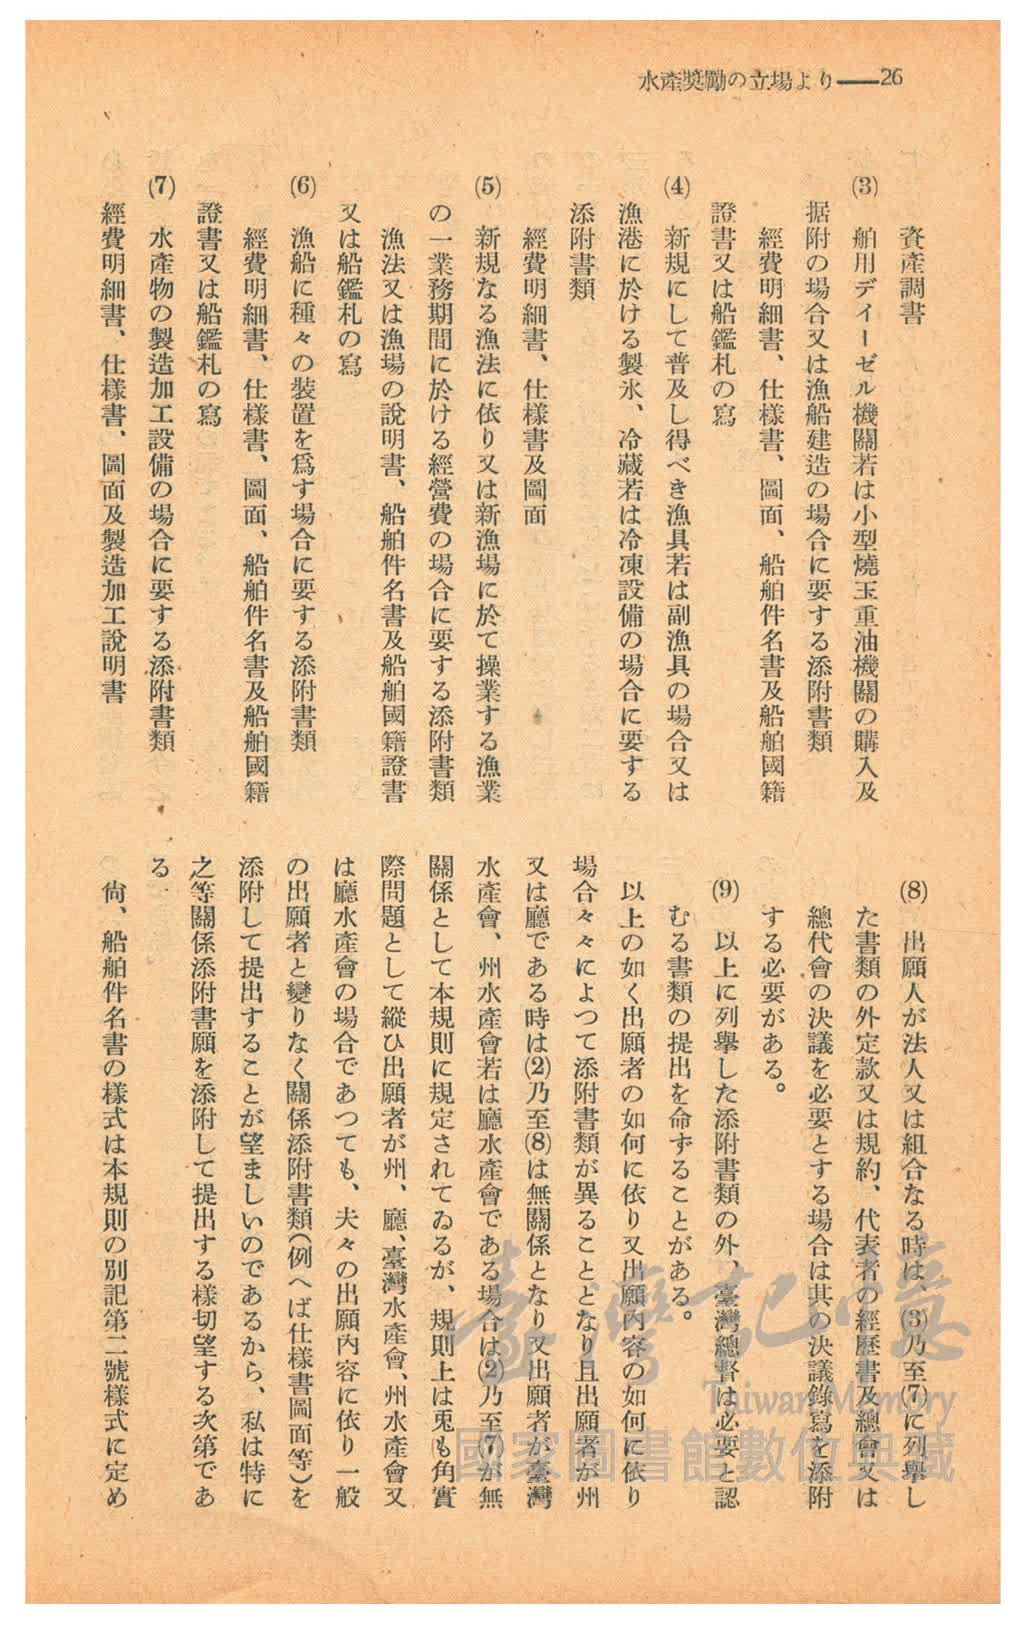 水產獎勵の立場より――26
資產調書
(3) 舶用ディーゼル機關若は小型燒玉重油機關の購入及
据附の場合又は漁船建造の場合に要する添附書類
經費明細書、仕樣書、圖面、船舶件名書及船舶國籍
證書又は船鑑札の寫
(4) 新規にして普及し得べき漁具若は副漁具の場合又は
漁港に於ける製氷、冷藏若は冷凍設備の場合に要する
添附書類
經費明細書、仕樣書及圖面
(5) 新規なる漁法に依り又は新漁場に於て操業する漁業
の一業務期間に於ける經營費の場合に要する添附書類
漁法又は漁場の說明書、船舶件名書及船舶國籍證書
又は船鑑札の寫
(6) 漁船に種々の裝置を爲す場合に要する添附書類
經費明細書、仕樣書、圖面、船舶件名書及船舶國籍
證書又は船鑑札の寫
(7) 水產物の製造加工設備の場合に要する添附書類
經費明細書、仕樣書、圖面及製造加工說明書
(8) 出願人が法人又は組合なる時は、(3)乃至(7)に列擧し
た書類の外定款又は規約、代表者の經歷書及總會又は
總代會の決議を必要とする場合は其の決議錄寫を添附
する必要がある。
(9) 以上に列擧した添附書類の外、臺灣總督は必要と認
むる書類の提出を命ずることがある。
以上の如く出願者の如何に依り又出願內容の如何に依り
場合々々によつて添附書類が異ることとなり且出願者が州
又は廳である時は(2)乃至(8)は無關係となり又出願者が臺灣
水產會、州水產會若は廳水產會である場合は(2)乃至(7)が無
關係として本規則に規定されてゐるが、規則上は兎も角實
際問題として縱ひ出願者が州、廳、臺灣水產會、州水產會又
は廳水產會の場合であつても、夫々の出願內容に依り一般
の出願者と變りなく關係添附書類(例へば仕樣書圖面等)を
添附して提出することが望ましいのであるから、私は特に
之等關係添附書願を添附して提出する樣切望する次第であ
る
尙、船舶件名書の樣式は本規則の別記第二號樣式に定め
臺灣記憶
Taiwan Memory
國家圖書館數位典藏